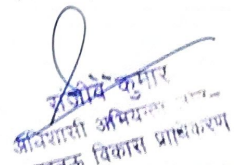 संजीव कुमार
अधिशासी अभियन्ता
विकास प्राधिकरण